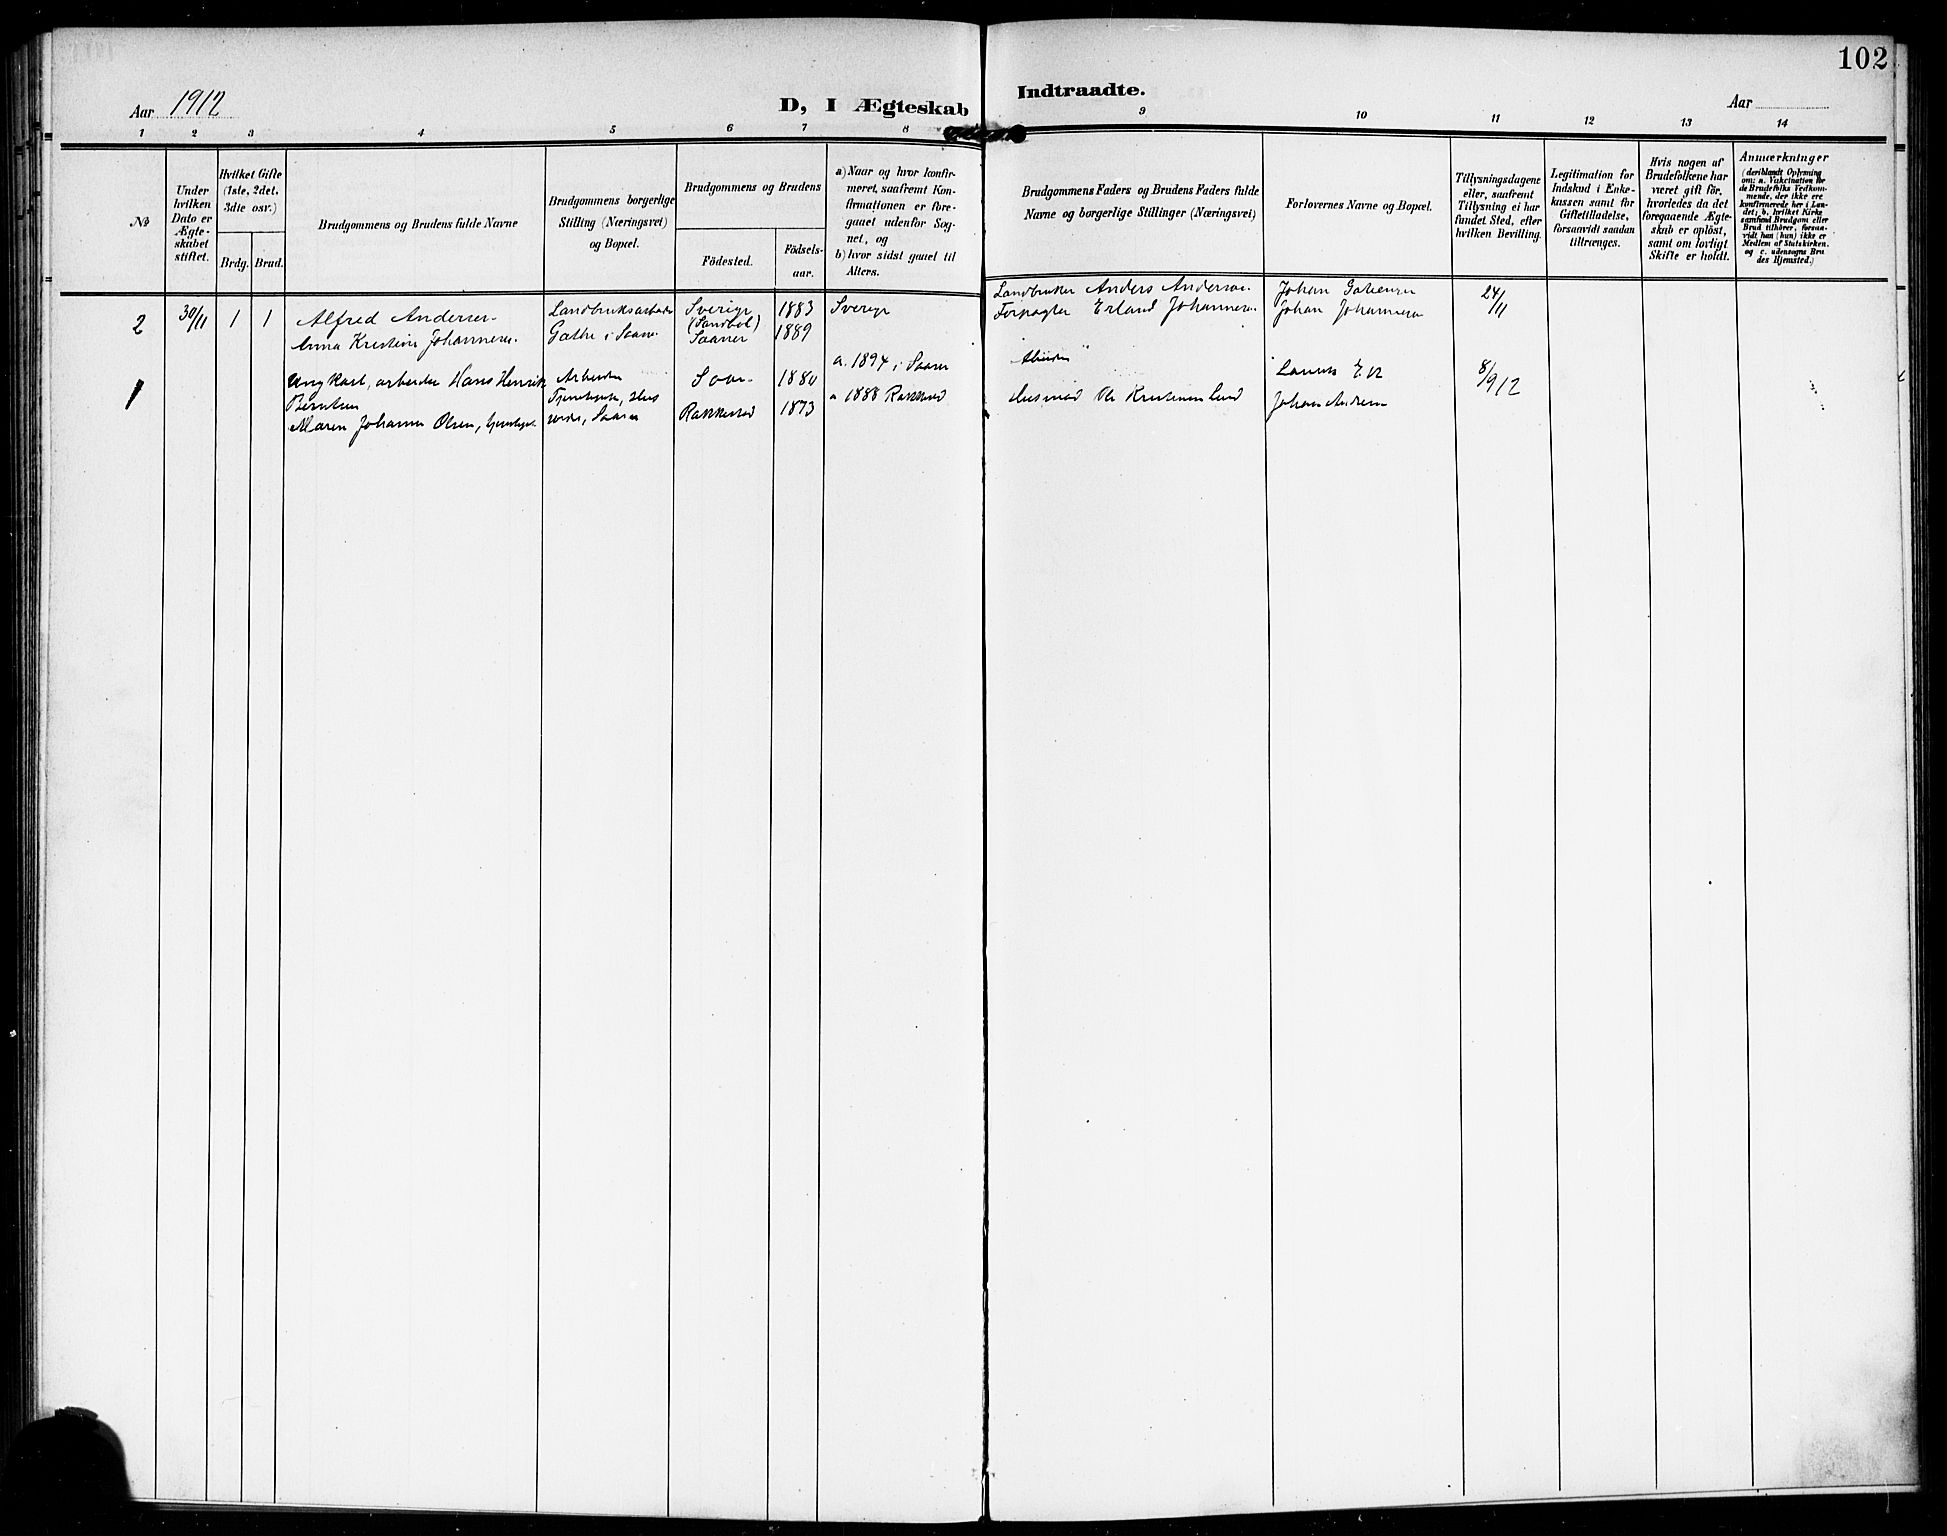 102
Aar 1912
D, I Ægteskab Indtraadte.
Aar
1 2 3 4 5 6 7 8 9 10 11 12 13 14
№
Under
hvilken
Dato er
Ægte-
skabet
stiftet.
Hvilket Gifte
(1ste, 2det,
3die osv.)
Brdg. Brud.
Brudgommens og Brudens fulde Navne
Brudgommens borgerlige
Stilling (Næringsvei)
og Bopæl.
Brudgommens og Brudens
Födested.
Födsels-
aar.
a) Naar og hvor konfir-
meret, saafremt Kon-
firmationen er fore-
gaaet udenfor Sog-
net, og
b) hvor sidst gaaet til
Alters.
Brudgommens Faders og Brudens Faders fulde
Navne og borgerlige Stillinger (Næringsvei)
Forlovernes Navne og Bopæl.
Tillysningsdagene
eller, saafremt
Tillysning ei har
fundet Sted, efter
hvilken Bevilling.
Legitimation for
Indskud i Enke-
kassen samt for
Giftetilladelse,
forsaavidt saadan
tiltrænges.
Hvis nogen af
Brudefolkene har
været gift för,
hvorledes da det
foregaaende Ægte-
skab er oplöst,
samt om lovligt
Skifte er holdt.
Anmærkninger
(deriblandt Oplysning
om: a. Vakcination för
de Brudefolks Vedkom-
mende, der ikke ere
konfirmerede her i Lan-
det; b. hvilket Kirke
samfund Brudgom eller
Brud tilhörer, forsaa-
vidt han (hun) ikke er
Medlem af Statskirken.
og c. udensogns Bru
des Hjemsted.)
2 30/11 1 1 Alfred Andersen
Anna Kristine Johannesen
Landbruksarbeider
Gathe i Saaner
Sverige
(Sandbol)
Saaner
1883
1889
Sverige
Landbruker Anders Anderson
Forpagter Erland Johannesen
Johan
Johan Johannesen
24/11
1 Ungkarl, arbeider Hans Henrik
Berntsen
Maren Johanne Olsen, tjenestepige
Arbeider
Tjenestepige,
Saaner
Rakkestad
1880
1873
a. 1894 i Saaner
a 1888 Rakkestad
Husmand Ole Kristensen Lund
Johan Andersen
8/9 12